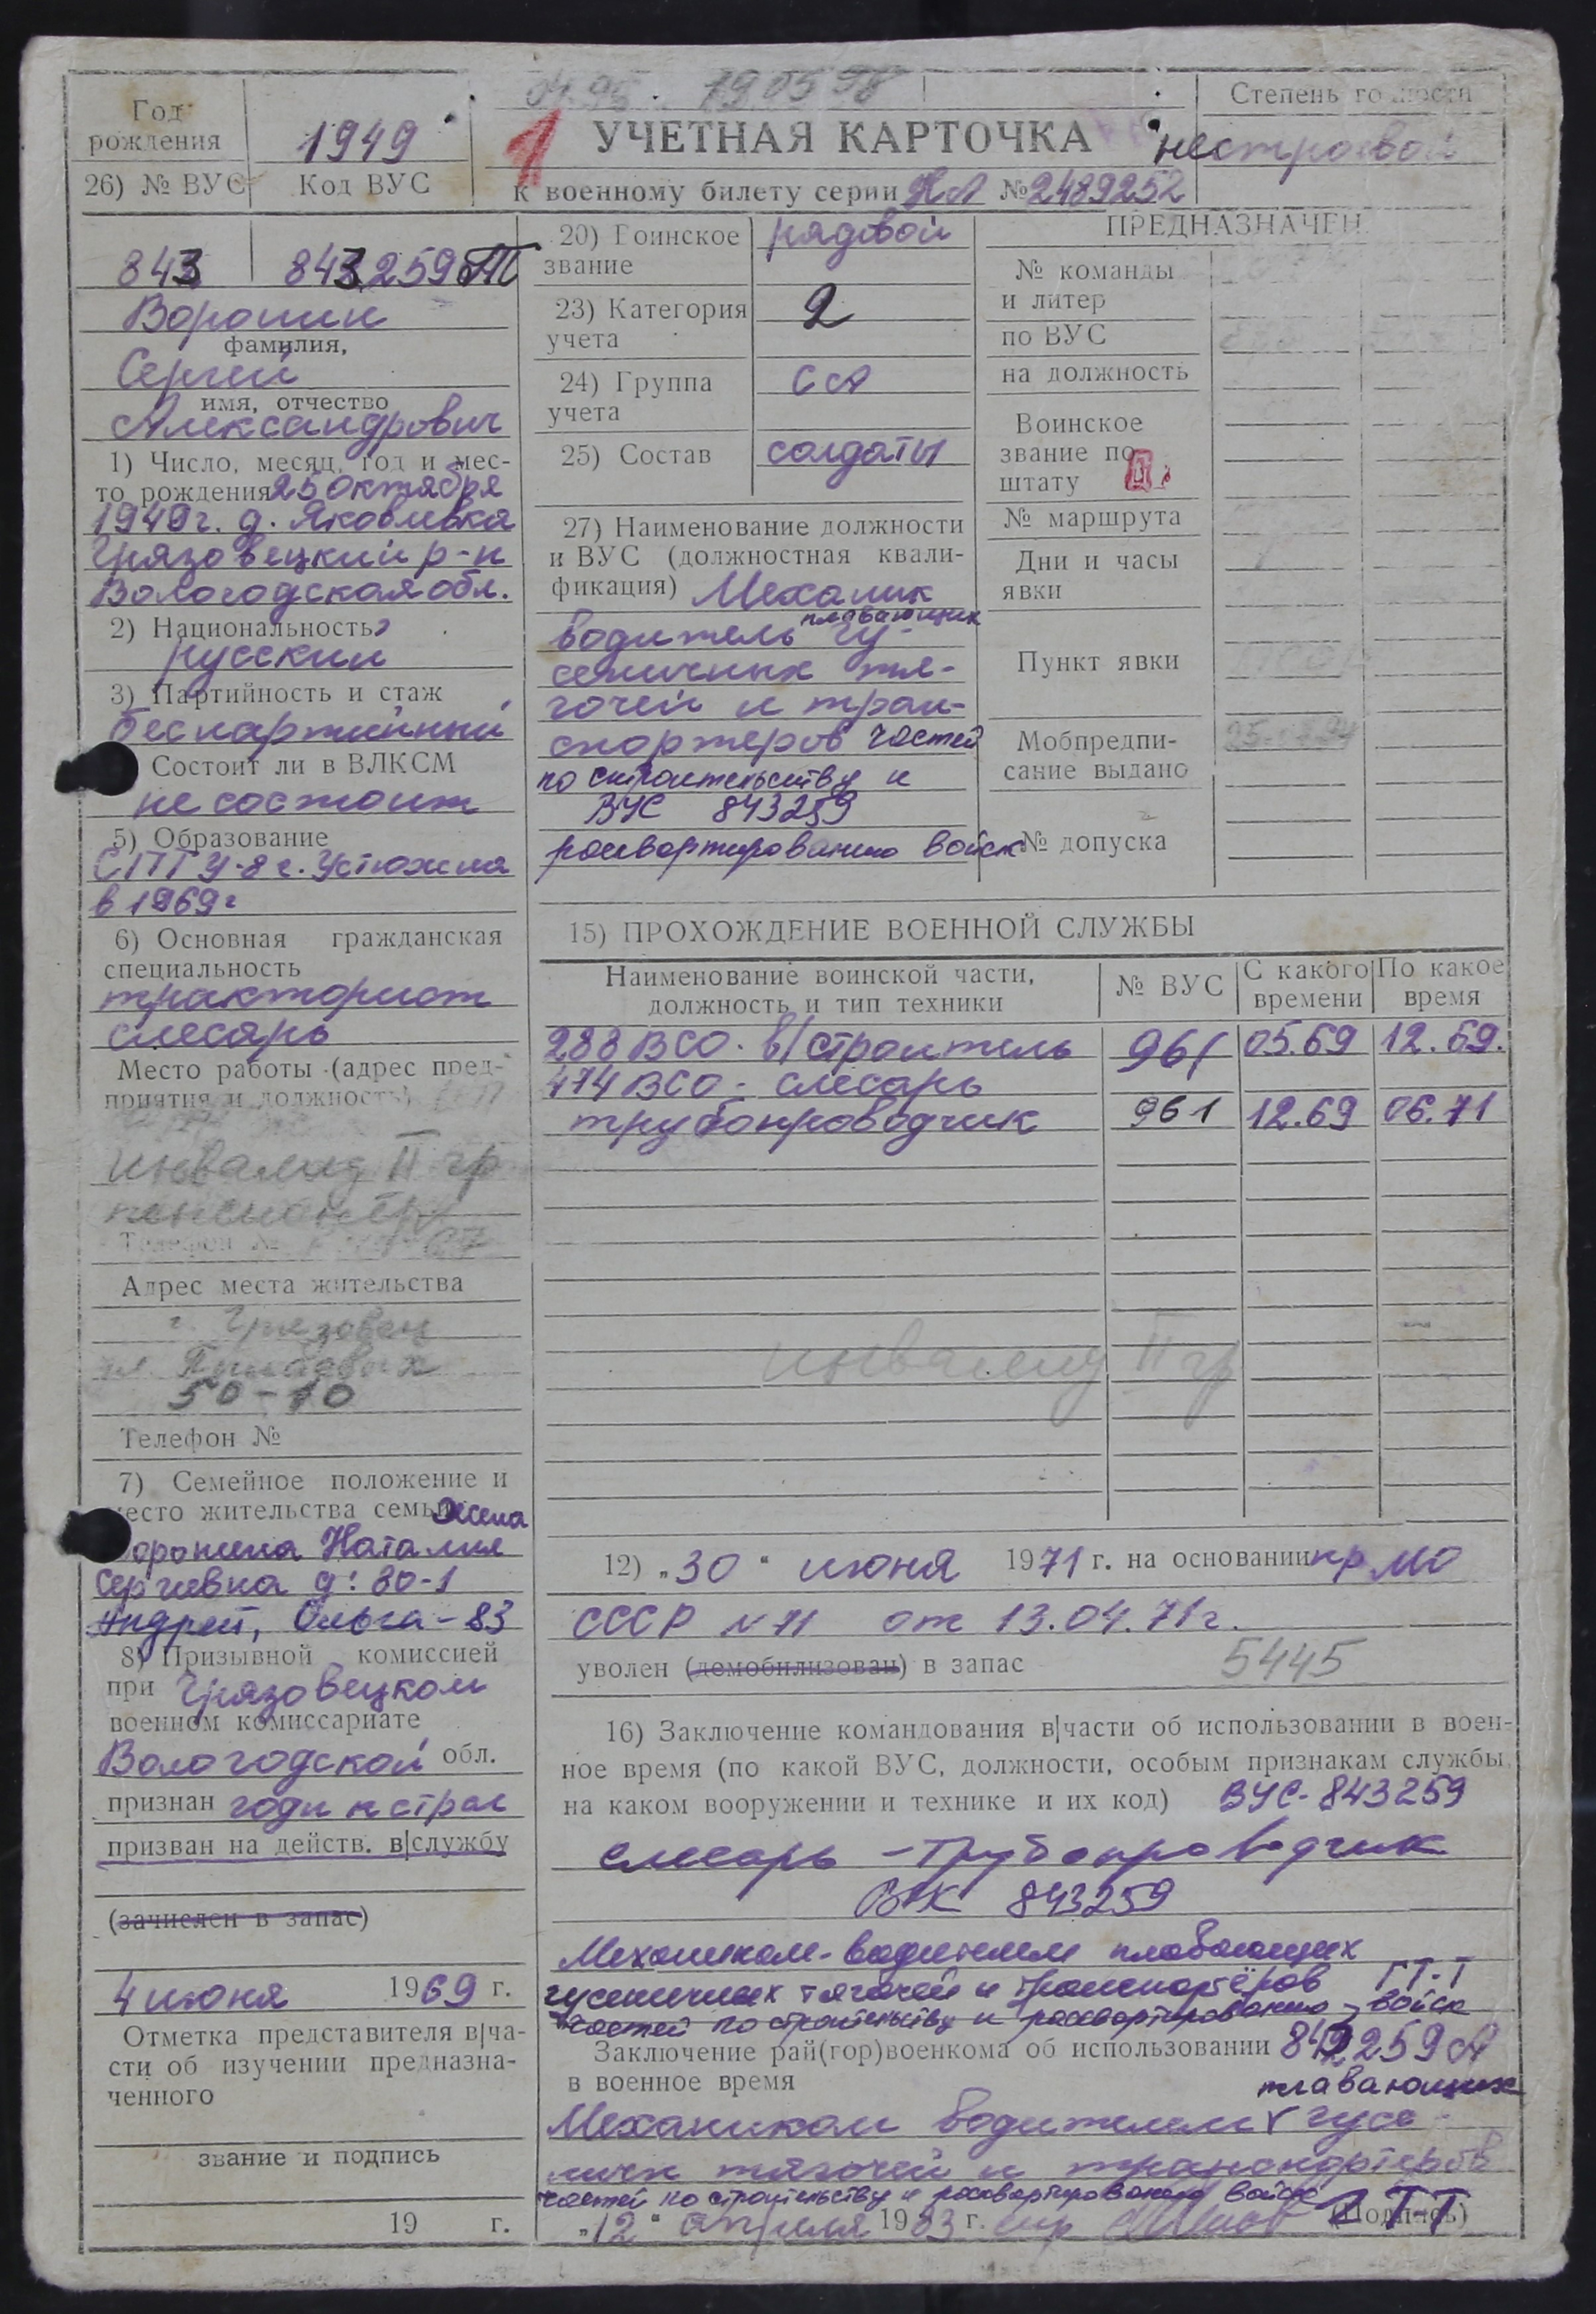 04.95. 190598
Год
рождения
1949
1
УЧЕТНАЯ КАРТОЧКА
к военному билету серии НА № 2489252
Степень годности
нестроевой
26) № ВУС Код ВУС
843 843259
Воронин
фамилия,
Сергей
имя, отчество
Александрович
1) Число, месяц, год и мес-
то рождения 25 октября
1949г. д. Яковлевка
Грязовецкий р-н
Вологодская обл.
2) Национальность
русский
3) Партийность и стаж
беспартийный
Состоит ли в ВЛКСМ
не состоит
5) Образование
СПТУ-8 г. Устюжна
в 1969г
6) Основная гражданская
специальность
тракторист
слесарь
Место работы (адрес пред-
приятия и должность)
инвалид II гр
пенсионер
Телефон №
Адрес места жительства
г. Грязовец
50-10
Телефон №
7) Семейное положение и
место жительства семьи жена
Воронина Наталия
Сергеевна д: 80-1
Андрей, Ольга-83
8) Призывной комиссией
при Грязовецком
военном комиссариате
Вологодской обл.
признан годн к строю
призван на действ. в|службу
(зачислен в запас)
4 июня 1969 г.
Отметка представителя в|ча-
сти об изучении предназна-
ченного
звание и подпись
19 г.
20) Воинское
звание
рядовой
23) Категория
учета
2
24) Группа
учета
СА
25) Состав
солдаты
27) Наименование должности
и ВУС (должностная квали-
фикация) Механик
водитель плавающих гу-
сеничных тя-
гочей и тран-
спортеров частей
по строительству и
ВУС 843259
расквартированию войск
ПРЕДНАЗНАЧЕН
№ команды
и литер
по ВУС
на должность
Воинское
звание по
штату
№ маршрута
Дни и часы
явки
Пункт явки
Мобпредпи-
сание выдано
№ допуска
15) ПРОХОЖДЕНИЕ ВОЕННОЙ СЛУЖБЫ
Наименование воинской части,
должность и тип техники
№ ВУС
С какого
времени
По какое
время
288 ВСО. в/строитель 961 05.69 12.69.
474 ВСО - слесарь
трубопроводчик 961 12.69 06.71
инвалид II гр
12) „30“ июня 1971 г. на основании пр МО
СССР № 71 от 13.04.71г.
уволен (демобилизован) в запас 5445
16) Заключение командования в|части об использовании в воен-
ное время (по какой ВУС, должности, особым признакам службы,
на каком вооружении и технике и их код) ВУС-843259
слесарь - трубопроводчик
843259
Механиком-водителем плавающих
гусеничных тягачей и транспортёров ГТ-Т
частей по строительству и расквартированию войск
Заключение рай(гор)военкома об использовании 259А
в военное время плавающих
Механиком водителем гусе-
ничн тягочей и транспортеров
частей по строительству и расквартированию войск ГТ-Т
„12“ апреля 1983 г. (подпись)